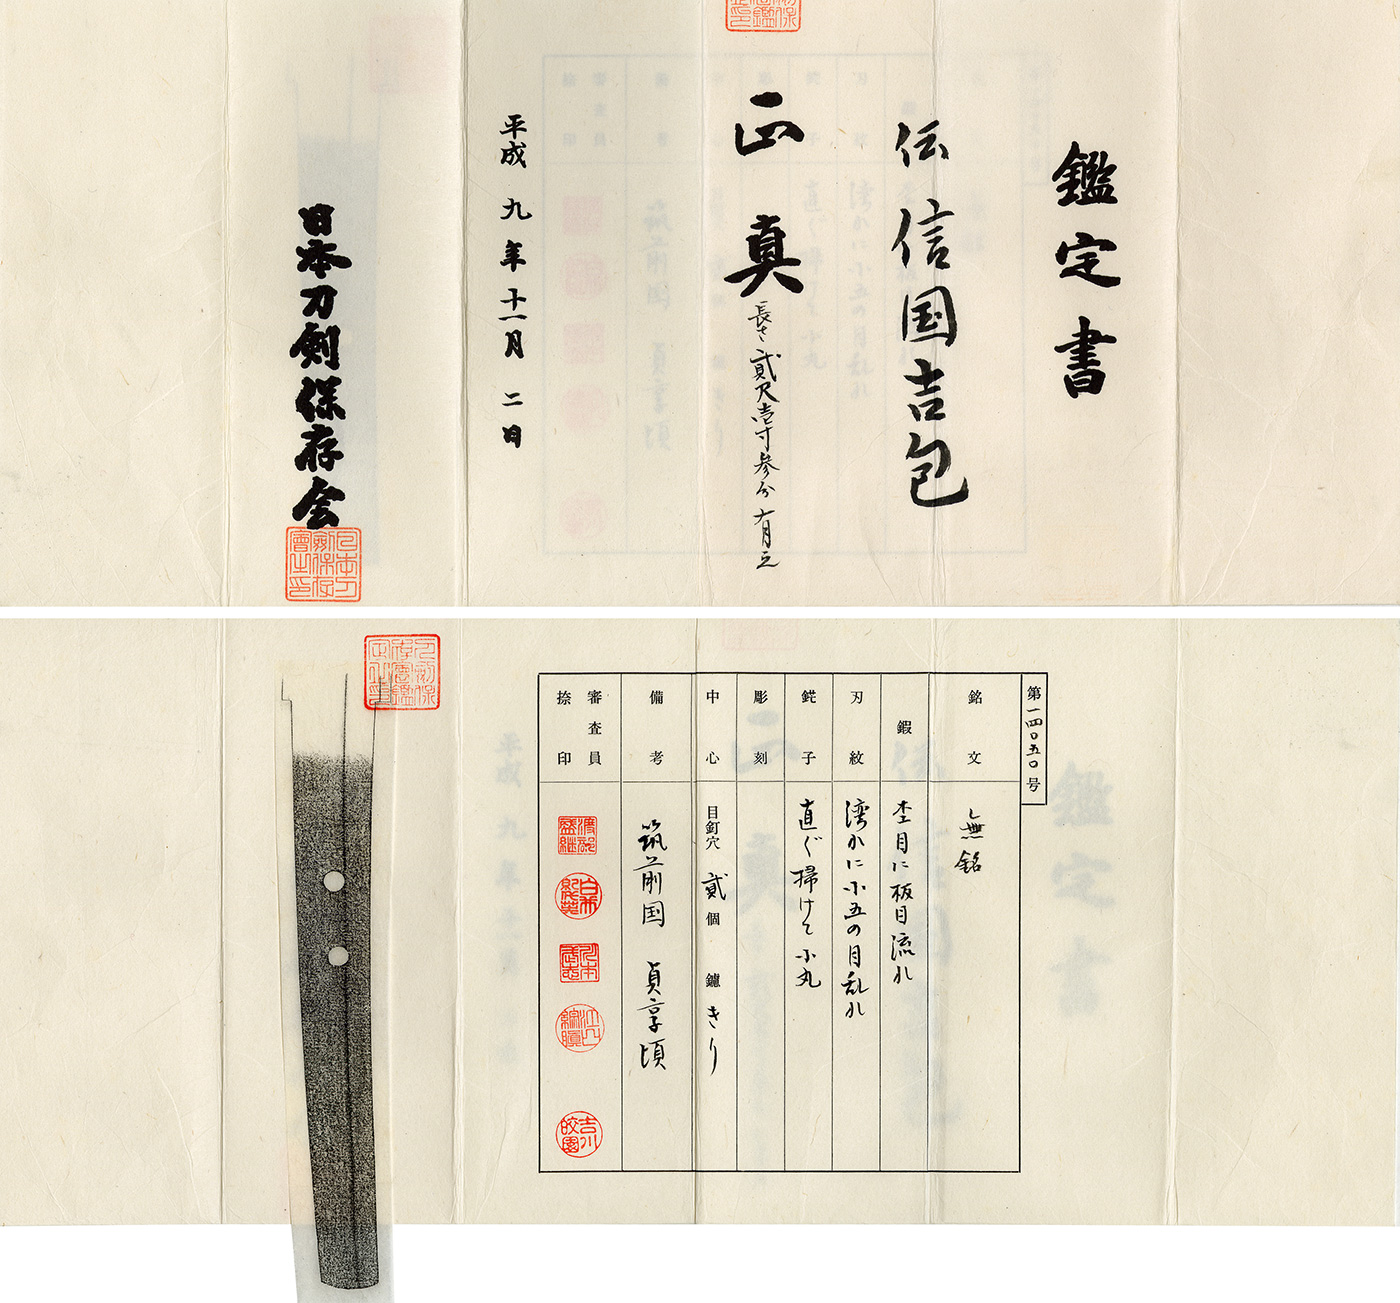 鑑定書
伝 信国吉包
正真
長さ 貳尺壱寸参分 有之
平成 九 年 十一月 二 日
日本刀剣保存会
第一四〇五〇号
銘文
無銘
鍜
杢目に板目流れ
刃紋
湾れに小五の目乱れ
鋩子
直ぐ掃けて小丸
彫刻
中心
目釘穴 貳 個 鑢 きり
備考
筑前国 貞享頃
審査員
捺印
吉川
皎園